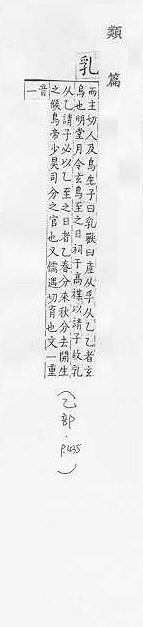 類篇
乳
而主切人及鳥生子曰乳獸曰產从孚从乙乙者玄
鳥也明堂月令玄鳥至之日祠于高禖以請子故乳
从乙請子必以乙至之日者乙春分來秋分去開生
之候鳥帝少昊司分之官也又儒遇切育也文一重
音一
(乙部·P.435)